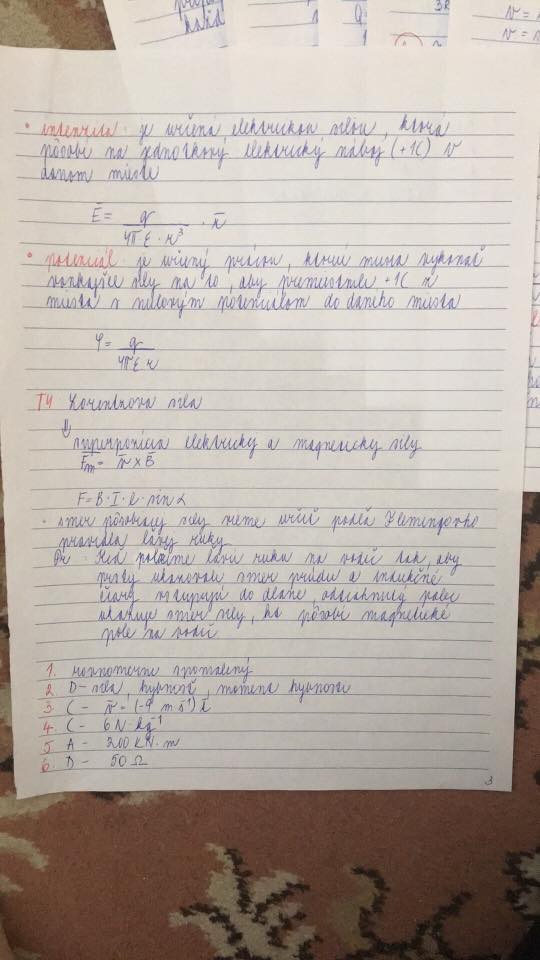 • intenzita je určená elektrickou silou, ktorá
pôsobí na jednotkový elektrický náboj (+1C) v
danom mieste
Ē = q / 4πε·r³ · r̄
• potenciál je určený prácou, ktorú musia vykonať
vonkajšie sily na to, aby premiestnili +1C z
miesta s nulovým potenciálom do daného miesta
φ = q / 4πεr
T4 Lorentzova sila
⇓
superpozícia elektrickej a magnetickej sily
F̄m = v̄ × B̄
F = B·I·l·sin α
• smer pôsobiacej sily vieme určiť podľa Flemingovho
pravidla ľavej ruky
Pr Keď položíme ľavú ruku na vodič tak, aby
prsty ukazovali smer prúdu a indukčné
čiary vstupujú do dlane, odtiahnutý palec
ukazuje smer sily, ktorou pôsobí magnetické
pole na vodič
1. rovnomerne spomalený
2 D – sila, hybnosť, moment hybnosti
3 C – v̄ = (-9 m s⁻¹) k̄
4 C – 6 N·kg⁻¹
5 A – 200 kN·m
6. D – 50 Ω
3